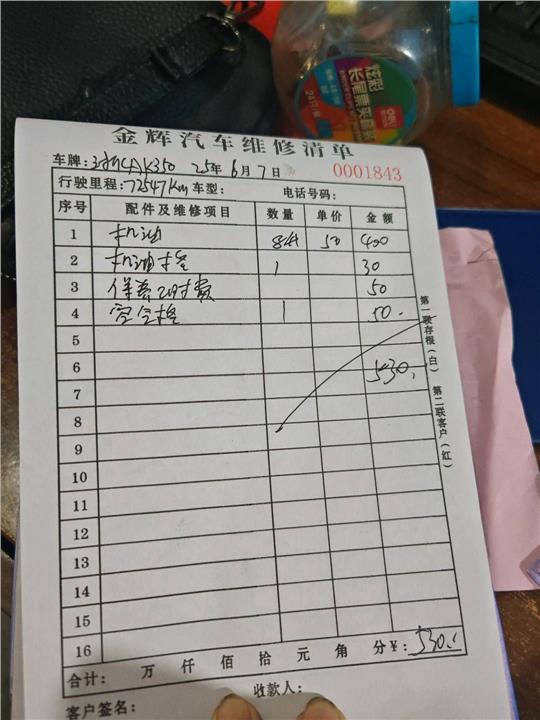 金辉汽车维修清单
车牌: K350 25年6月7日 0001843
行驶里程:72547km 车型: 电话号码:
序号 配件及维修项目 数量 单价 金额
1 机油 8 50 400
2 机油格 1 30
3 保养工时费 50
4 空气格 1 50.
5
6 530.
7
8
9
10
11
12
13
14
15
16
合计: 万 仟 佰 拾 元 角 分¥: 530.
客户签名: 收款人:
第一联存根(白) 第二联客户(红)
炫彩
长尾票夹套装
deli
24只/筒